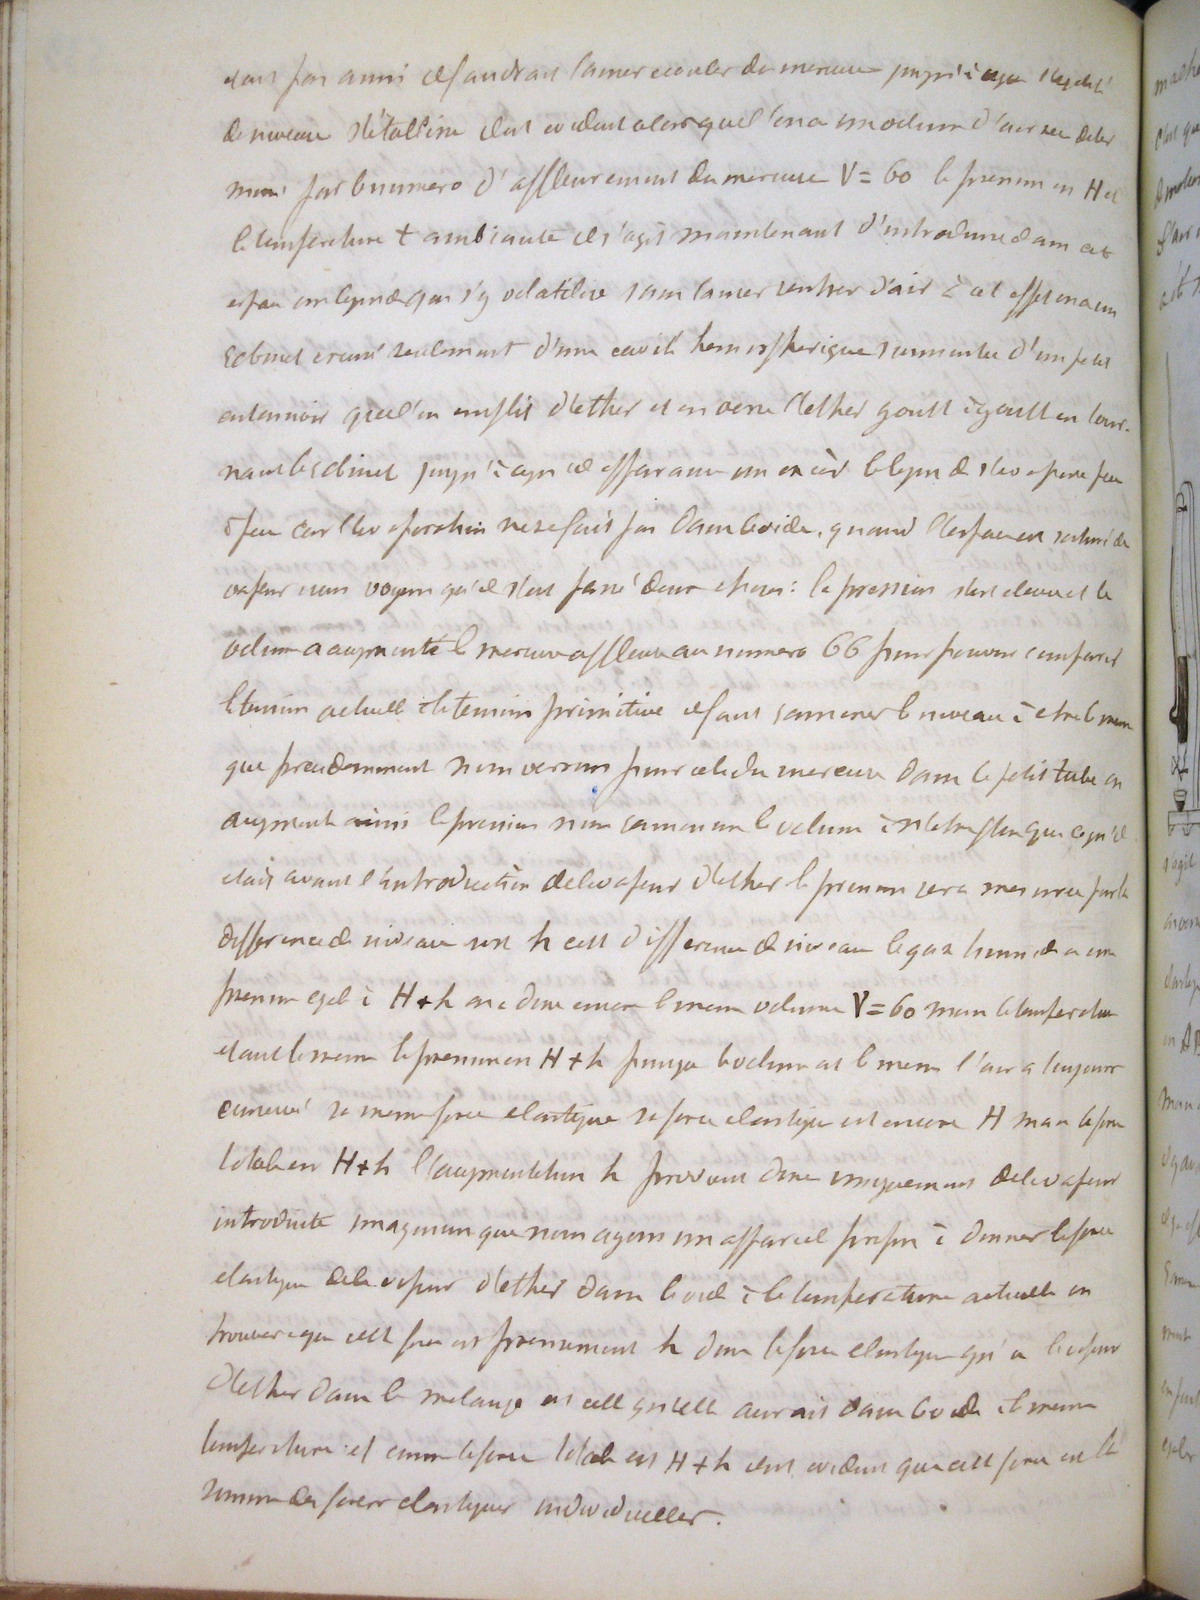 était pas ainsi il faudrait laisser ecouler du mercure jusqu'à ce que l'egalité
de niveau s'établisse il est evident alors que l'on a un volume d'air sec deter
miné par le numero d'affleurement du mercure V = 60 la pression est H et
la temperature t ambiante il s'agit maintenant d'introduire dans cet
espace un liquide qui s'y volatilise sans laisser rentrer d'air à cet effet on a un
robinet creusé seulement d'une cavité hemispherique surmontée d'un petit
entonnoir que l'on emplit d'ether et on verse l'ether goutte à goutte en tour-
nant le robinet jusqu'à ce qu'il apparaisse un excès le liquide s'evapore peu
à peu car l'evaporation ne se fait pas dans le vide, quand l'espace est saturé de
vapeur nous voyons qu'il s'est passé deux choses : la pression s'est elevée et le
volume a augmenté le mercure affleure au numero 66 pour pouvoir comparer
la tension actuelle à la tension primitive il faut ramener le niveau à etre le meme
que precedemment nous versons pour cela du mercure dans le petit tube on
augmente ainsi la pression nous ramenons le volume à n'etre plus que ce qu'il
etait avant l'introduction de la vapeur d'ether la pression sera mesurée par la
difference de niveau soit h cette difference de niveau le gaz humide a une
pression egale à H + h on a donc encore le meme volume V = 60 mais la temperature
etant la meme la pression est H + h puisque le volume est le meme l'air a toujours
conservé sa meme force elastique sa force elastique est encore H mais la force
totale est H + h l'augmentation h provient donc uniquement de la vapeur
introduite imaginons que nous ayons un appareil propre à donner la force
elastique de la vapeur d'ether dans le vide à la temperature actuelle on
trouvera que cette force est precisement h donc la force elastique qu'a la vapeur
d'ether dans le melange est celle qu'elle aurait dans le vide à la meme
temperature et comme la force totale est H + h il est evident que cette force est la
somme des forces elastiques individuelles.